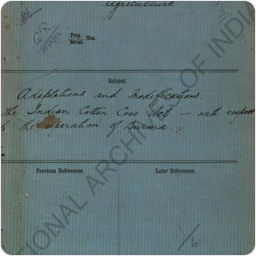 Agriculture
Prog. Nos.
Serial
Subject.
Adaptations and Modifications.
the Indian Cotton Cess Act — with respect
to the separation of Burma.
Previous References.
Later References.
NATIONAL ARCHIVES OF INDIA